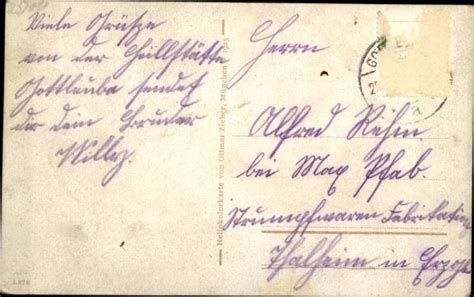 Viele Grüße
von der Heilstätte
Gottleuba sendet
dir dein Bruder
Willy.
Heliokolorkarte von Ottmar Zieher, München
Herrn
Alfred Rehm
bei Max Pfab.
Strumpfwaren Fabrikation
Thalheim in Erzgeb
GO